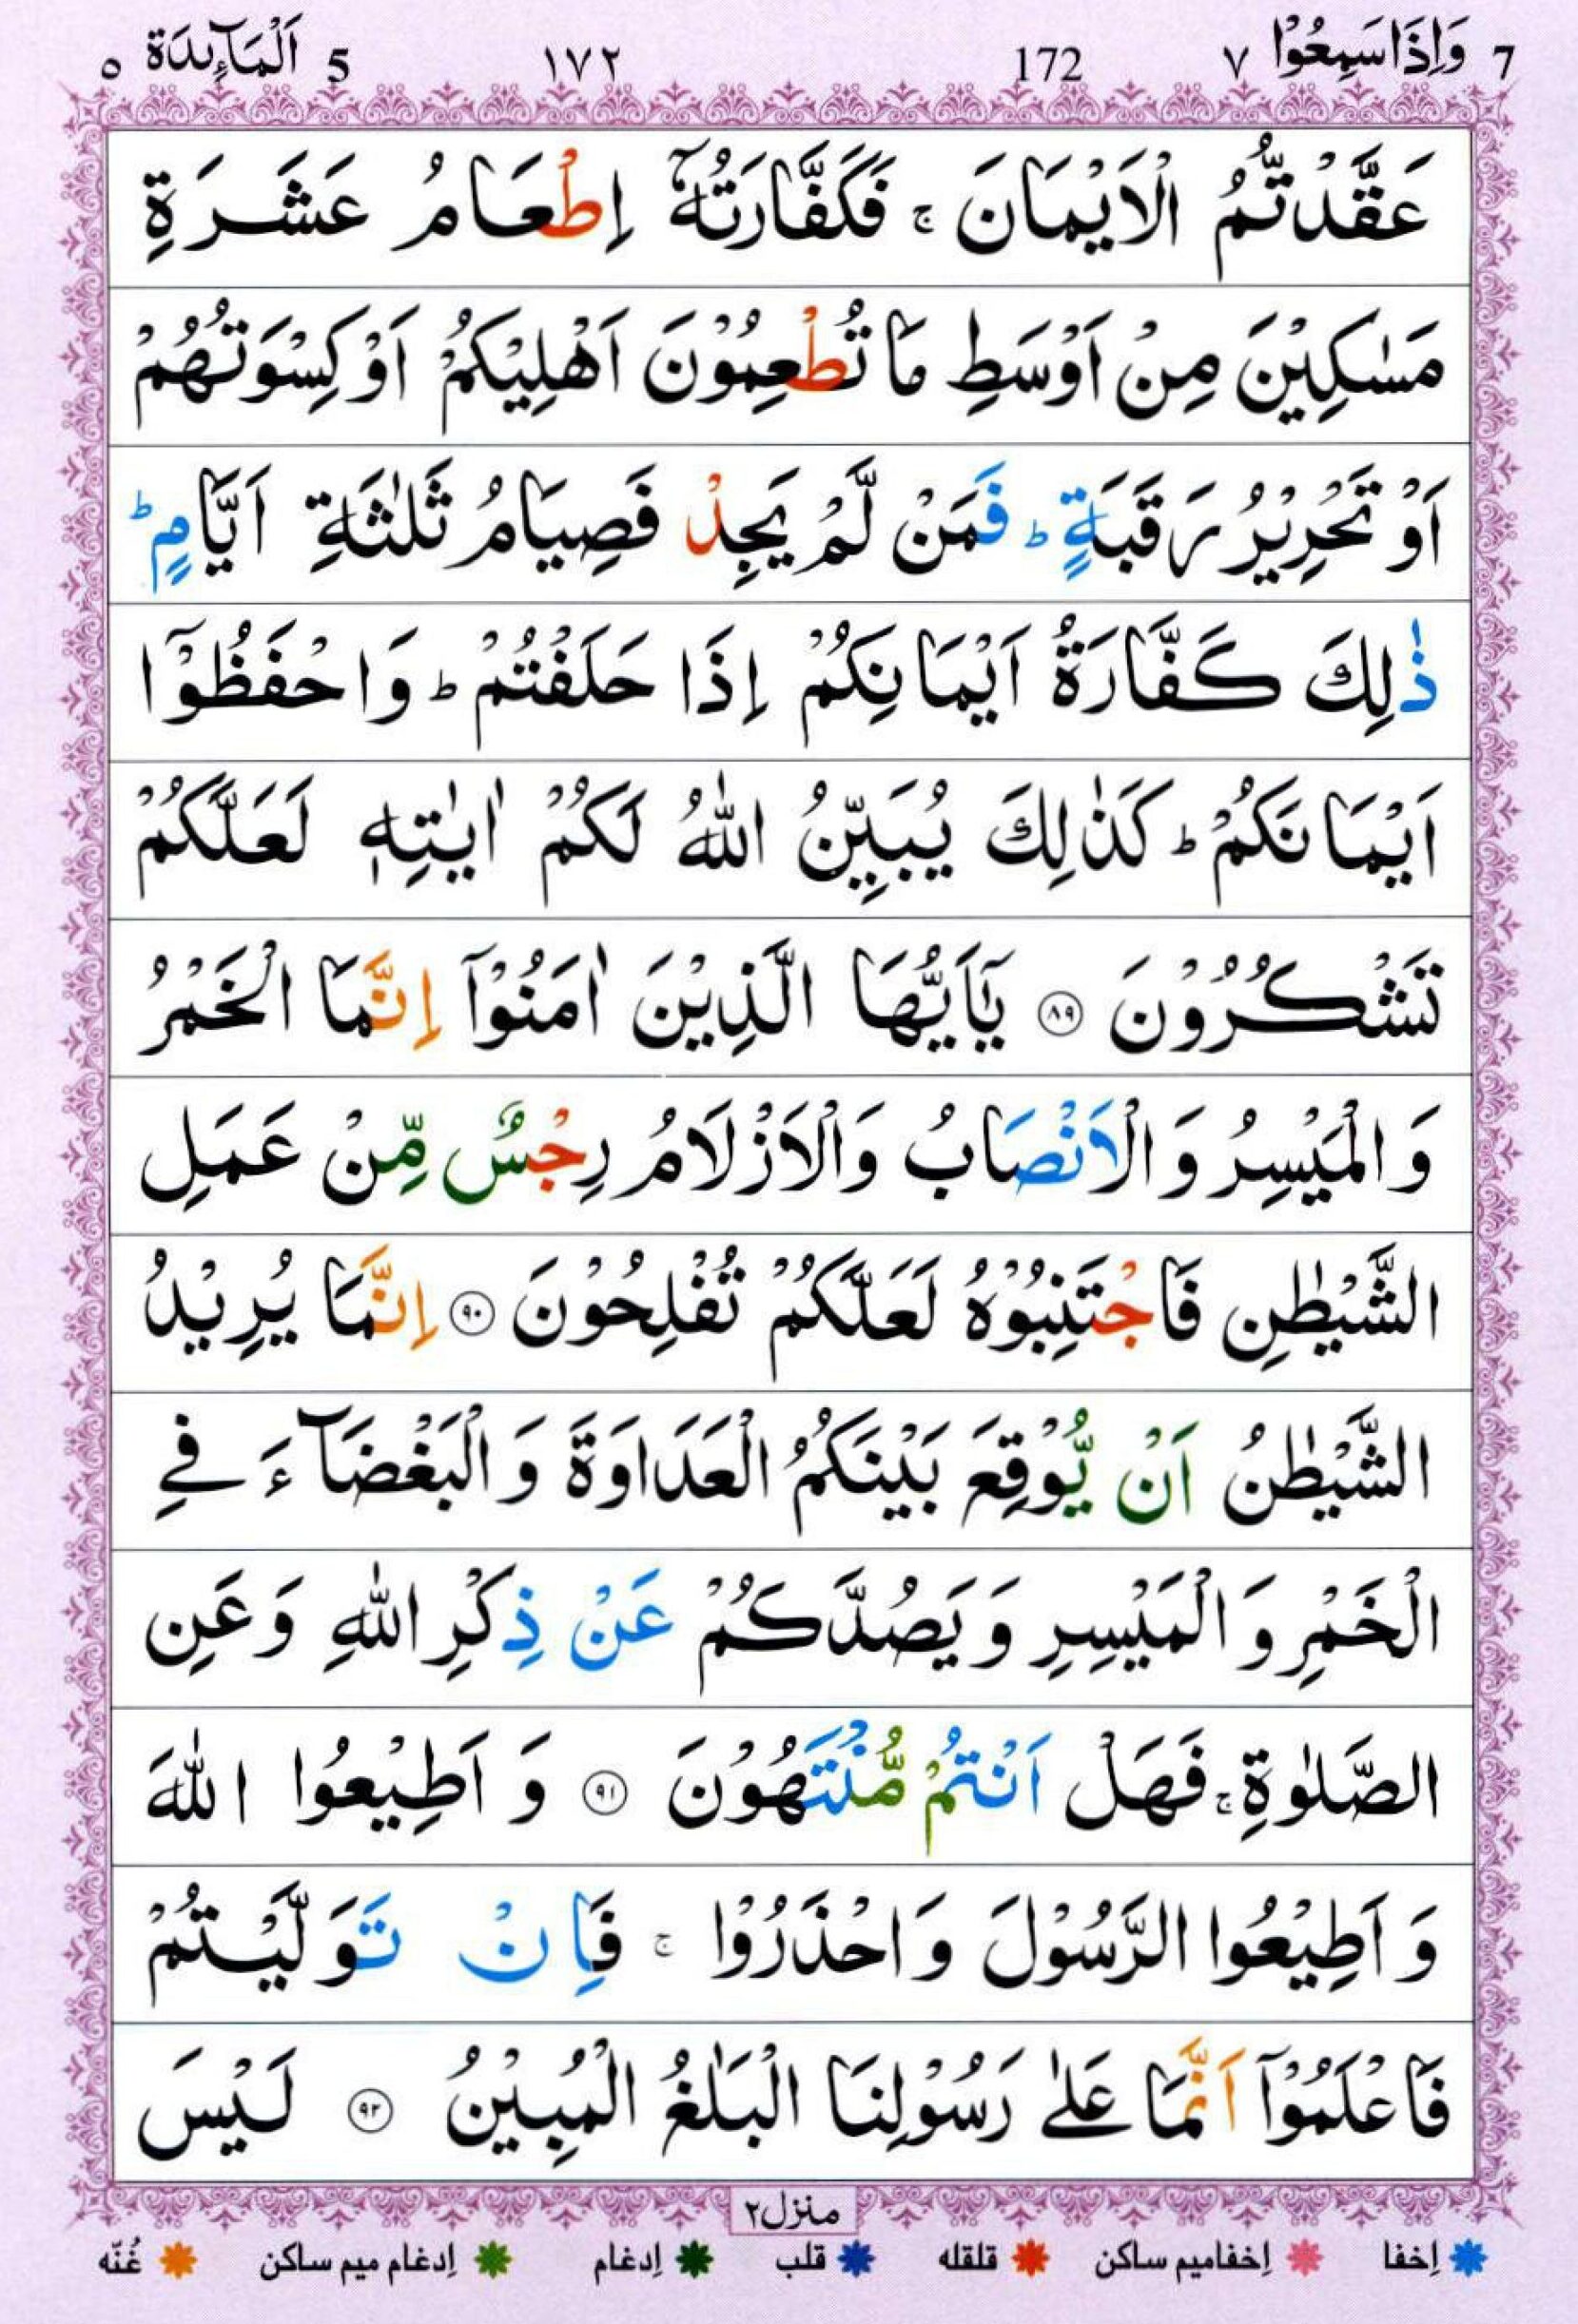 7 وَاِذَا سَمِعُوْا ٧ 172 ١٧٢ 5 اَلْمَآىِٕدَة ٥
عَقَّدْتُّمُ الْاَيْمَانَ ۚ فَكَفَّارَتُهٗۤ اِطْعَامُ عَشَرَةِ
مَسٰكِيْنَ مِنْ اَوْسَطِ مَا تُطْعِمُوْنَ اَهْلِيْكُمْ اَوْ كِسْوَتُهُمْ
اَوْ تَحْرِيْرُ رَقَبَةٍ ؕ فَمَنْ لَّمْ يَجِدْ فَصِيَامُ ثَلٰثَةِ اَيَّامٍ ؕ
ذٰلِكَ كَفَّارَةُ اَيْمَانِكُمْ اِذَا حَلَفْتُمْ ؕ وَاحْفَظُوْۤا
اَيْمَانَكُمْ ؕ كَذٰلِكَ يُبَيِّنُ اللّٰهُ لَكُمْ اٰيٰتِهٖ لَعَلَّكُمْ
تَشْكُرُوْنَ ۝٨٩ يٰۤاَيُّهَا الَّذِيْنَ اٰمَنُوْۤا اِنَّمَا الْخَمْرُ
وَالْمَيْسِرُ وَالْاَنْصَابُ وَالْاَزْلَامُ رِجْسٌ مِّنْ عَمَلِ
الشَّيْطٰنِ فَاجْتَنِبُوْهُ لَعَلَّكُمْ تُفْلِحُوْنَ ۝٩٠ اِنَّمَا يُرِيْدُ
الشَّيْطٰنُ اَنْ يُّوْقِعَ بَيْنَكُمُ الْعَدَاوَةَ وَالْبَغْضَآءَ فِي
الْخَمْرِ وَالْمَيْسِرِ وَيَصُدَّكُمْ عَنْ ذِكْرِ اللّٰهِ وَعَنِ
الصَّلٰوةِ ۚ فَهَلْ اَنْتُمْ مُّنْتَهُوْنَ ۝٩١ وَاَطِيْعُوا اللّٰهَ
وَاَطِيْعُوا الرَّسُوْلَ وَاحْذَرُوْا ۚ فَاِنْ تَوَلَّيْتُمْ
فَاعْلَمُوْۤا اَنَّمَا عَلٰى رَسُوْلِنَا الْبَلٰغُ الْمُبِيْنُ ۝٩٢ لَيْسَ
منزل ٢
اِخفا اِخفا میم ساکن قلقله قلب اِدغام اِدغام میم ساکن غُنّه